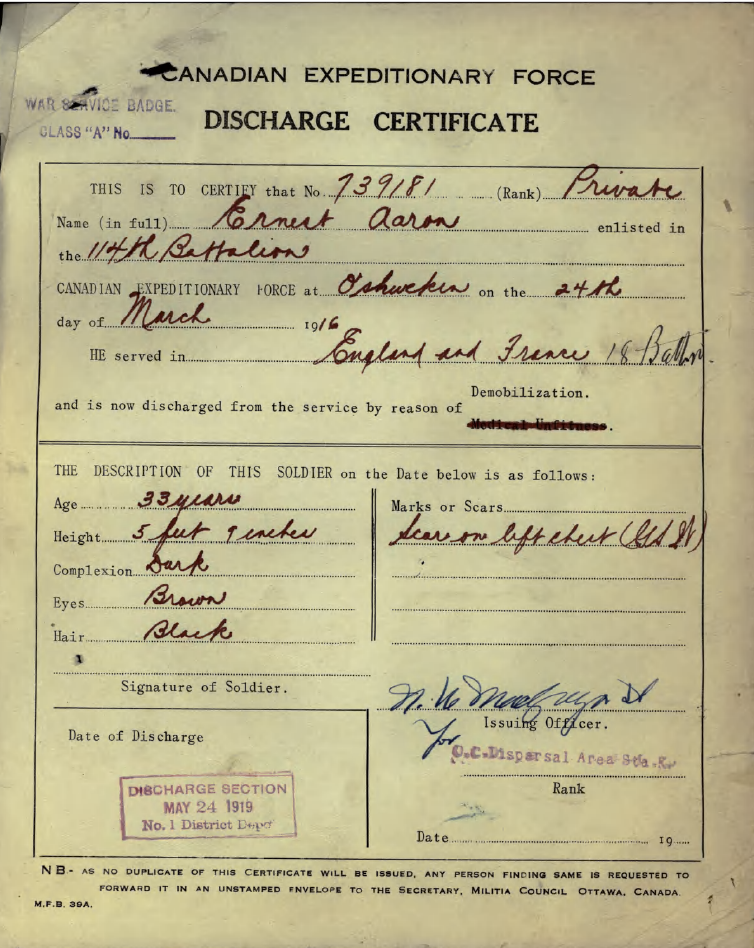 CANADIAN EXPEDITIONARY FORCE
WAR SERVICE BADGE.
CLASS "A" No.
DISCHARGE CERTIFICATE
THIS IS TO CERTIFY that No. 739181 (Rank) Private
Name (in full) Ernest Aaron enlisted in
the 114th Battalion
CANADIAN EXPEDITIONARY FORCE at Oshweken on the 24th
day of March 1916
HE served in England and France 18 Battn.
Demobilization.
and is now discharged from the service by reason of
Medical Unfitness.
THE DESCRIPTION OF THIS SOLDIER on the Date below is as follows:
Age 33 years
Height 5 feet 9 inches
Complexion Dark
Eyes Brown
Hair Black
Marks or Scars
Scar on left chest
Signature of Soldier.
Issuing Officer.
for O.C. Dispersal Area Sta. K.
Rank
Date of Discharge
DISCHARGE SECTION
MAY 24 1919
No. 1 District Depot
Date 19
NB- AS NO DUPLICATE OF THIS CERTIFICATE WILL BE ISSUED, ANY PERSON FINDING SAME IS REQUESTED TO
FORWARD IT IN AN UNSTAMPED ENVELOPE TO THE SECRETARY, MILITIA COUNCIL OTTAWA, CANADA.
M.F.B. 39A.